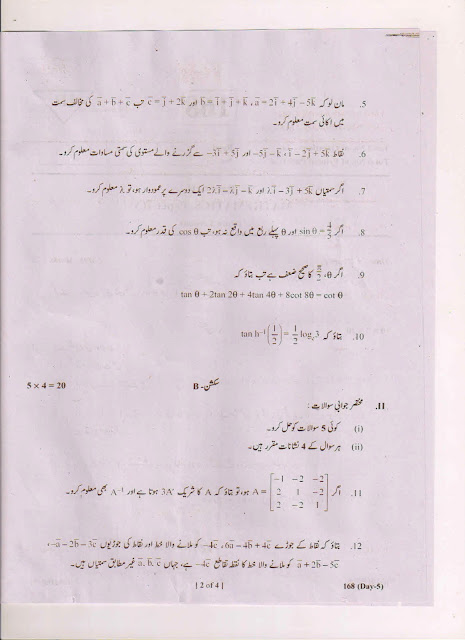 5. مان لو کہ a̅ = 2i̅ + 4j̅ − 5k̅، b̅ = i̅ + j̅ + k̅ اور c̅ = j̅ + 2k̅ تب a̅ + b̅ + c̅ کی مخالف سمت
میں اکائی سمتیہ معلوم کرو۔
6. نقاط i̅ − 2j̅ + 5k̅، −5j̅ − k̅ اور −3i̅ + 5j̅ سے گزرنے والے مستوی کی سمتی مساوات معلوم کرو۔
7. اگر سمتیاں λi̅ − 3j̅ + 5k̅ اور 2λi̅ − λj̅ − k̅ ایک دوسرے پر عمودوار ہو، تو λ معلوم کرو۔
8. اگر sin θ = 4/5 اور θ پہلے ربع میں واقع نہ ہو، تب cos θ کی قدر معلوم کرو۔
9. اگر θ، π/2 کا صحیح ضعف ہے تب بتاؤ کہ
tan θ + 2tan 2θ + 4tan 4θ + 8cot 8θ = cot θ
10. بتاؤ کہ tan h⁻¹(1/2) = 1/2 logₑ3
سکشن - B
5 × 4 = 20
II. مختصر جوابی سوالات :
(i) کوئی 5 سوالات کو حل کرو۔
(ii) ہر سوال کے 4 نشانات مقرر ہیں۔
11. اگر A = [−1 −2 −2; 2 1 −2; 2 −2 1] ہو، تو بتاؤ کہ A کا شریک 3A' ہوتا ہے اور A⁻¹ بھی معلوم کرو۔
12. بتاؤ کہ نقاط کے جوڑے 6a̅ − 4b̅ + 4c̅، −4c̅ کو ملانے والا خط اور نقاط کی جوڑیوں −a̅ − 2b̅ − 3c̅،
a̅ + 2b̅ − 5c̅ کو ملانے والا خط کا نقطہ تقاطع −4c̅ ہے، جہاں a̅, b̅, c̅ غیر مطابق سمتیاں ہیں۔
[ 2 of 4 ]
168 (Day-5)